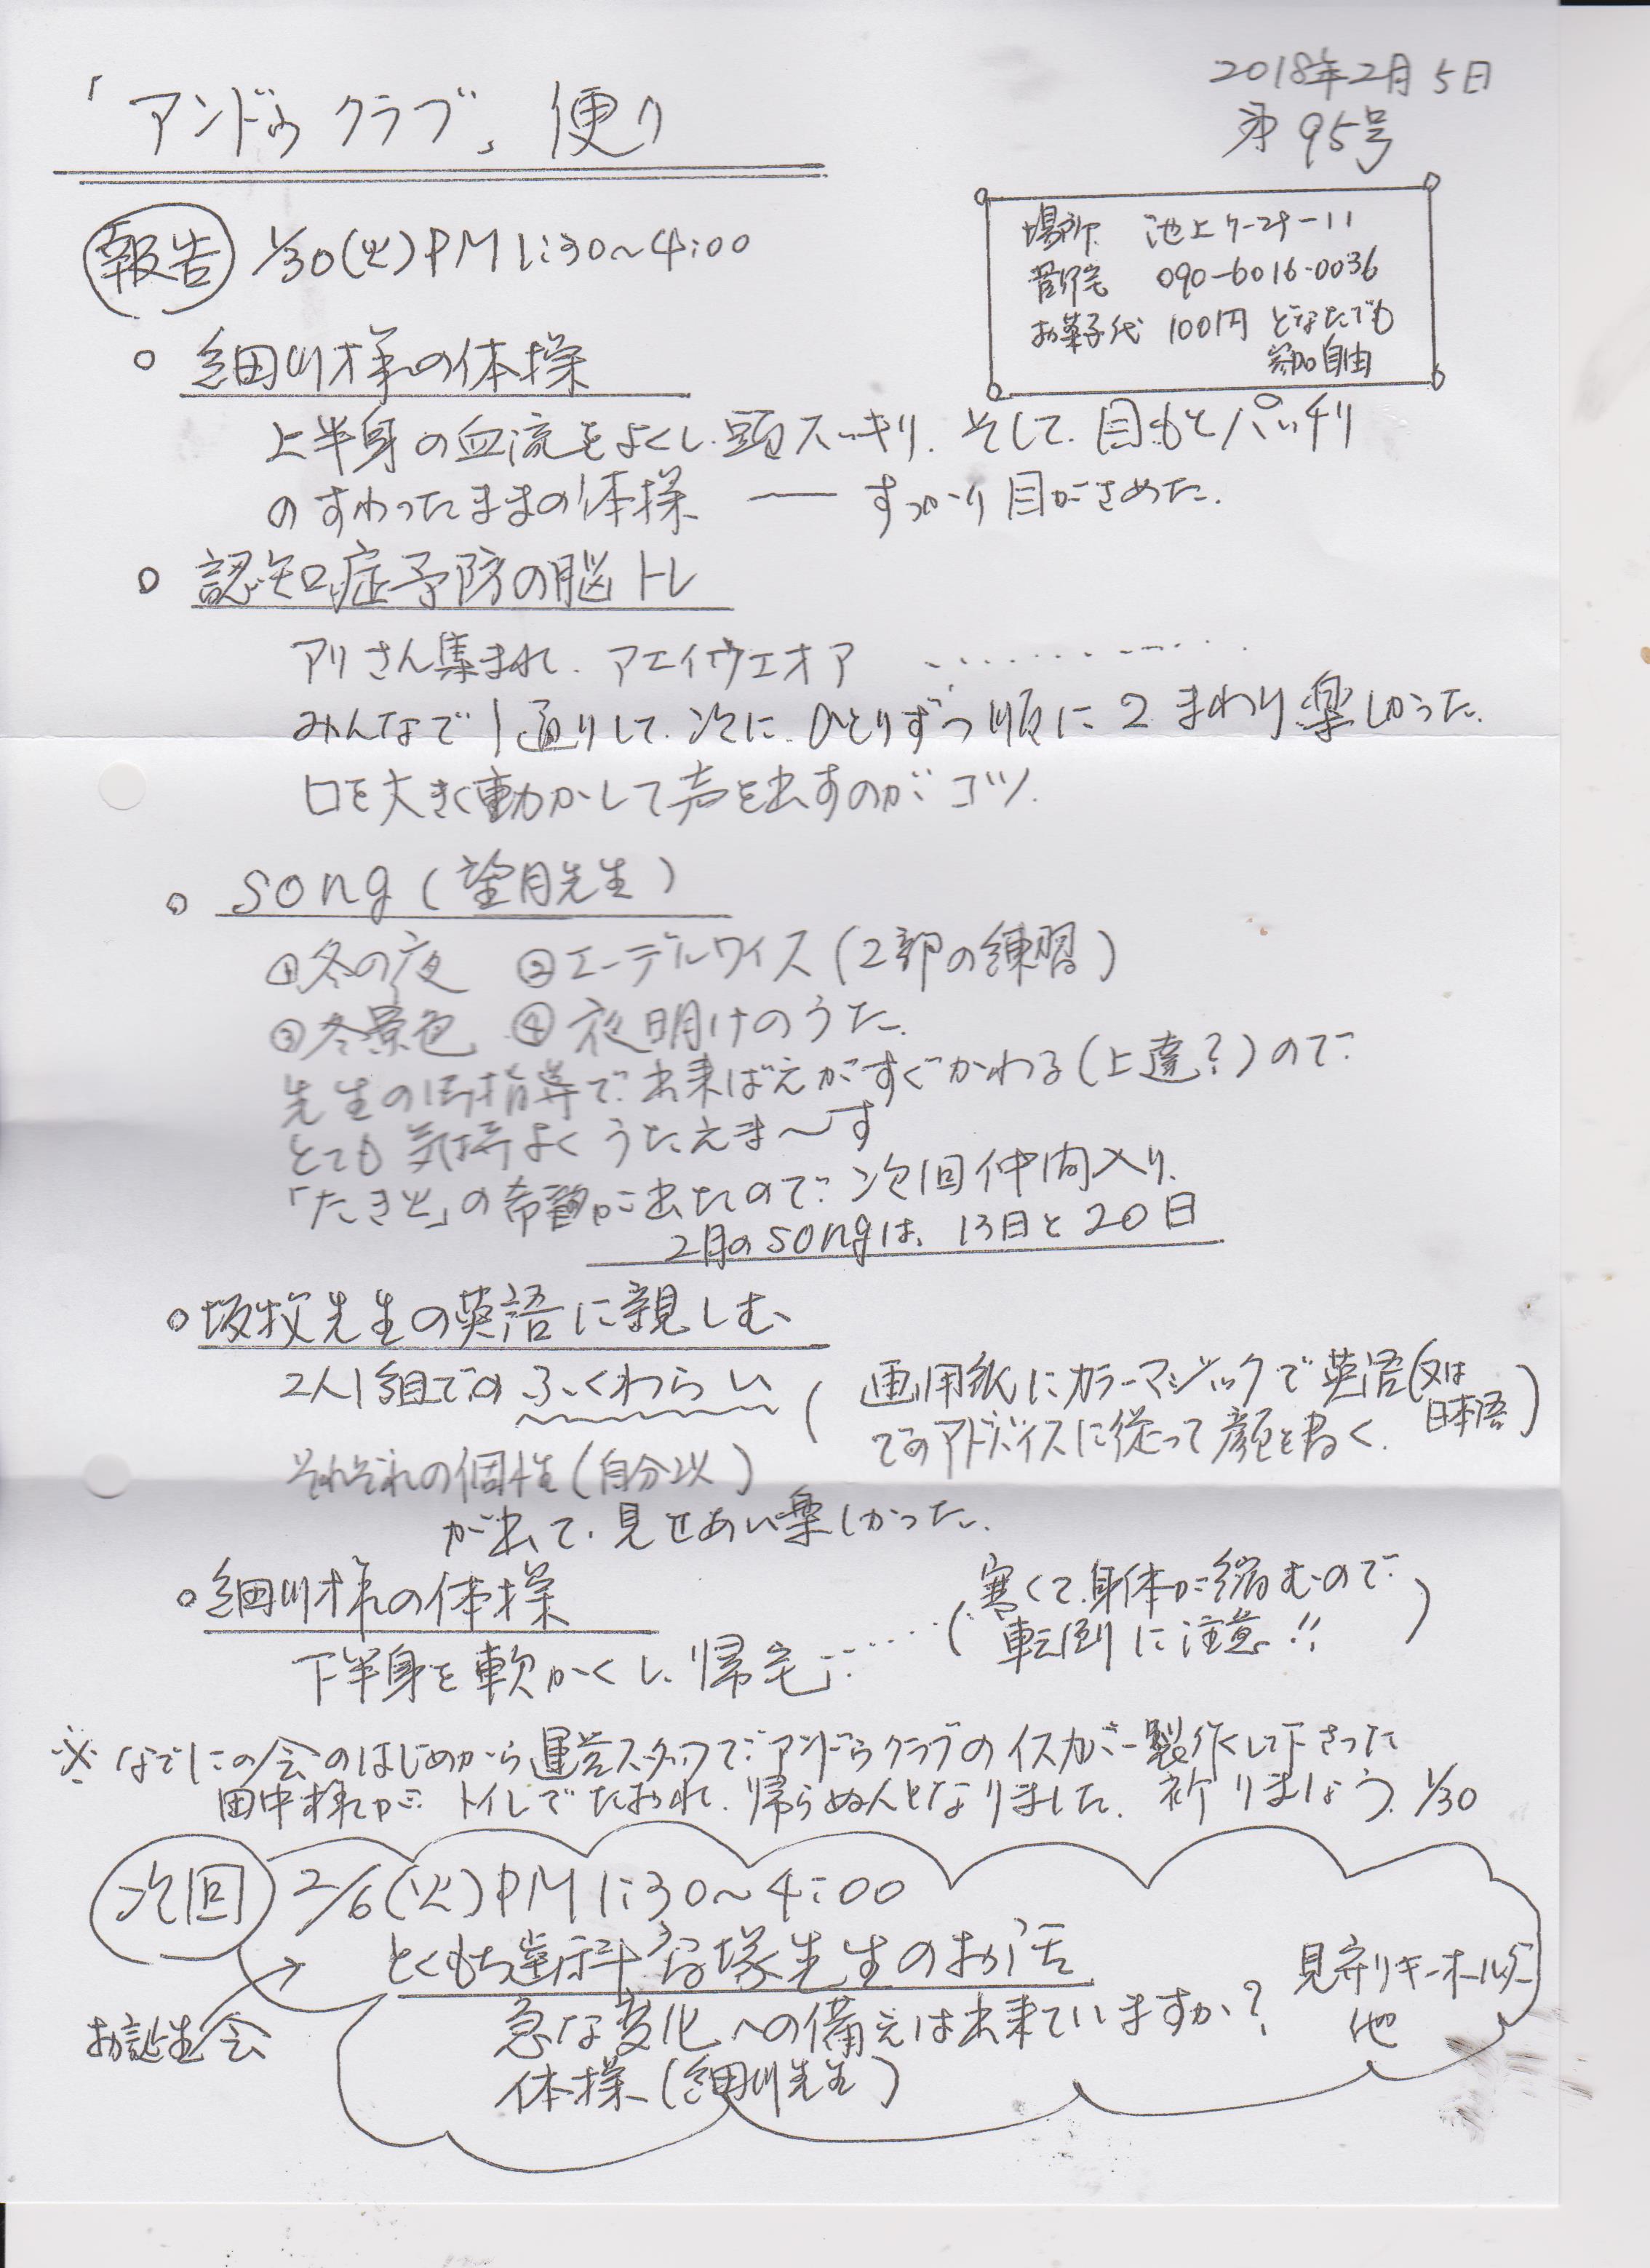 「アンドゥクラブ」便り
2018年2月5日
第95号
場所 池上7-29-11
菅野宅 090-6016-0036
お菓子代 100円 どなたでも
参加自由
報告 1/30(火)PM1:30〜4:00
○ 細川様の体操
上半身の血流をよくし、頭スッキリ、そして、目もとパッチリ
のすわったままの体操 ── すっかり目がさめた。
○ 認知症予防の脳トレ
アリさん集まれ、アエイウエオア ‥‥‥‥‥
みんなで1通りして、次に、ひとりずつ順に2まわり楽しかった。
口を大きく動かして声を出すのがコツ。
○ song(望月先生)
①冬の夜 ②エーデルワイス(2部の練習)
③冬景色 ④夜明けのうた
先生の御指導で、出来ばえがすぐかわる(上達?)ので
とても気持よくうたえま〜す
「たき火」の希望が出たので、次回仲間入り。
2月のsongは、13日と20日
○坂牧先生の英語に親しむ
2人1組でのふくわらい(画用紙にカラーマジックで英語(又は日本語)
でのアドバイスに従って顔を書く。)
それぞれの個性(自分以)
が出て、見せあい楽しかった。
○細川様の体操
下半身を軟かくし、帰宅‥‥‥(寒くて、身体が縮むので
転倒に注意!!)
※なでしこの会のはじめから運営スタッフで、アンドゥクラブのイスカバー製作して下さった
田中様が、トイレでたおれ、帰らぬ人となりました。祈りましょう。1/30
次回 2/6(火)PM1:30〜4:00
とくもち歯科 先生のお話
お誕生会
急な変化への備えは出来ていますか? 見守りキーホルダー
他
体操(細川先生)